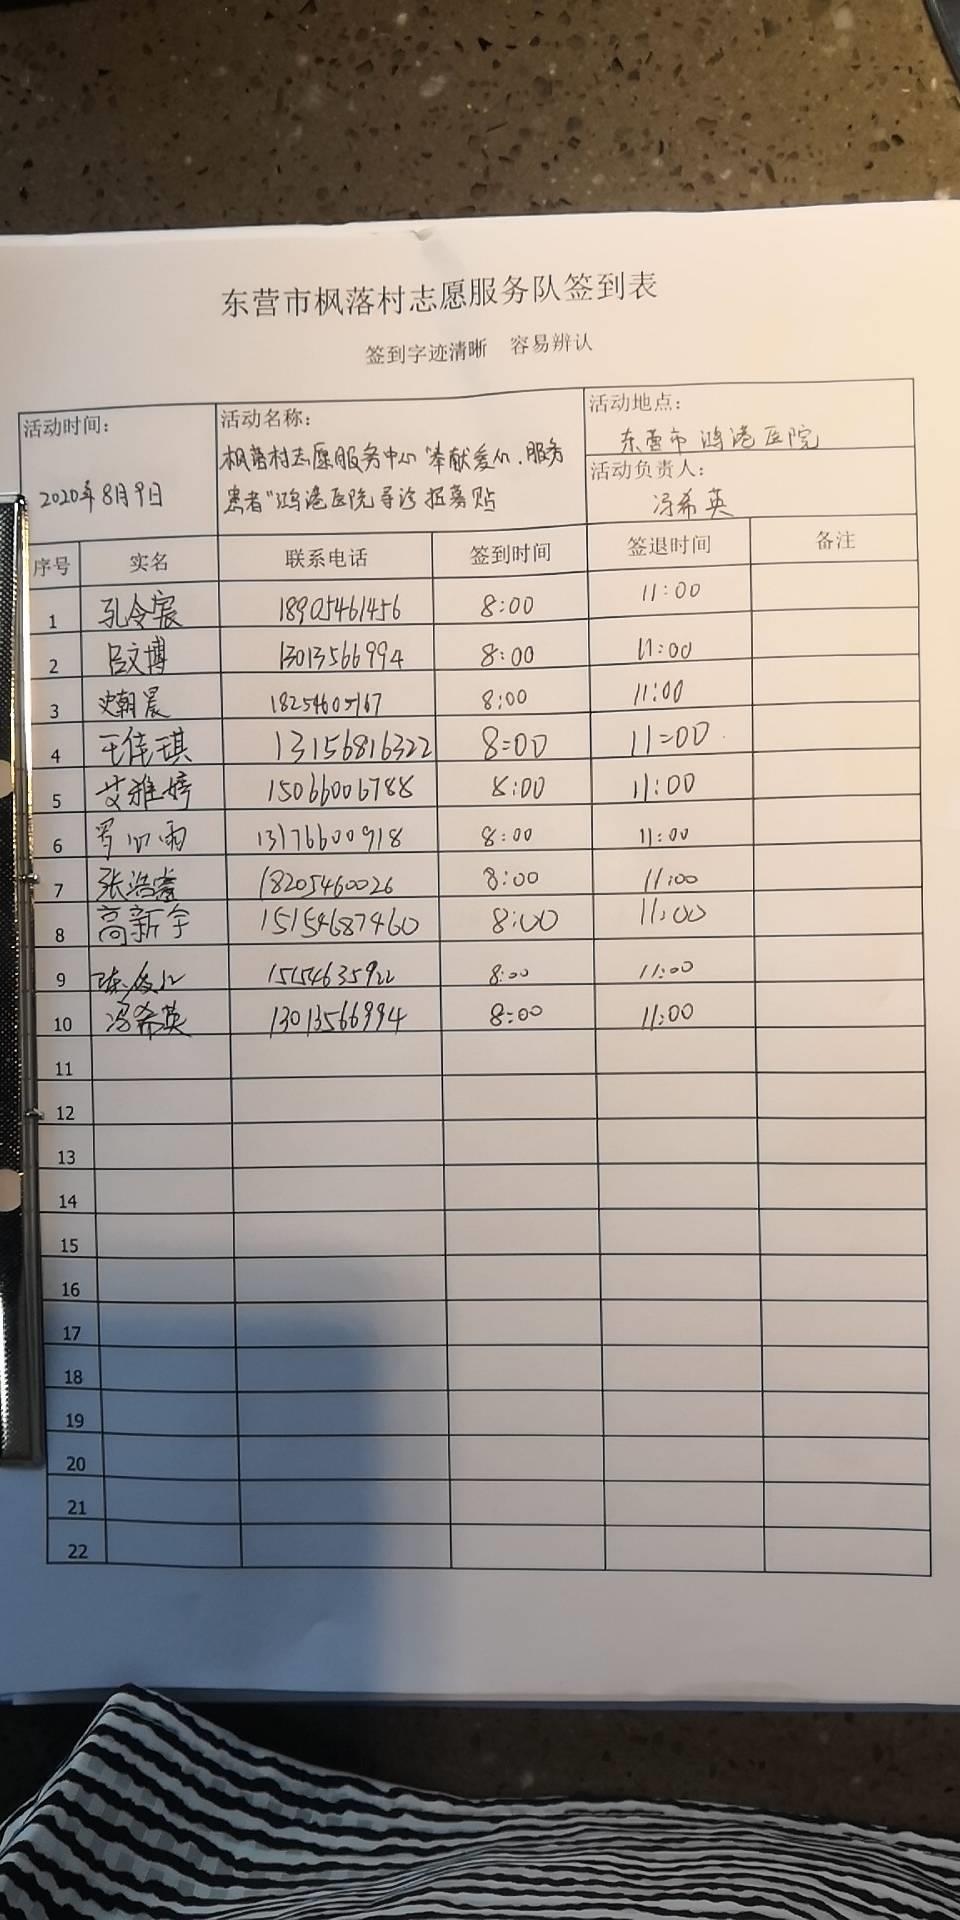 东营市枫落村志愿服务队签到表
签到字迹清晰 容易辨认
活动时间:
2020年8月9日
活动名称:
枫落村志愿服务中心“奉献爱心.服务
患者”鸿港医院导诊招募贴
活动地点:
东营市鸿港医院
活动负责人:
冯希英
序号 实名 联系电话 签到时间 签退时间 备注
1 孔令宸 18905461456 8:00 11:00
2 吕文博 13013566994 8:00 11:00
3 史朝晨 18254605167 8:00 11:00
4 王佳琪 13156816322 8:00 11:00
5 艾雅婷 15066006788 8:00 11:00
6 罗心雨 13176600918 8:00 11:00
7 张浩睿 18205460026 8:00 11:00
8 高新宇 15154687460 8:00 11:00
9 15154635922 8:00 11:00
10 冯希英 13013566994 8:00 11:00
11
12
13
14
15
16
17
18
19
20
21
22